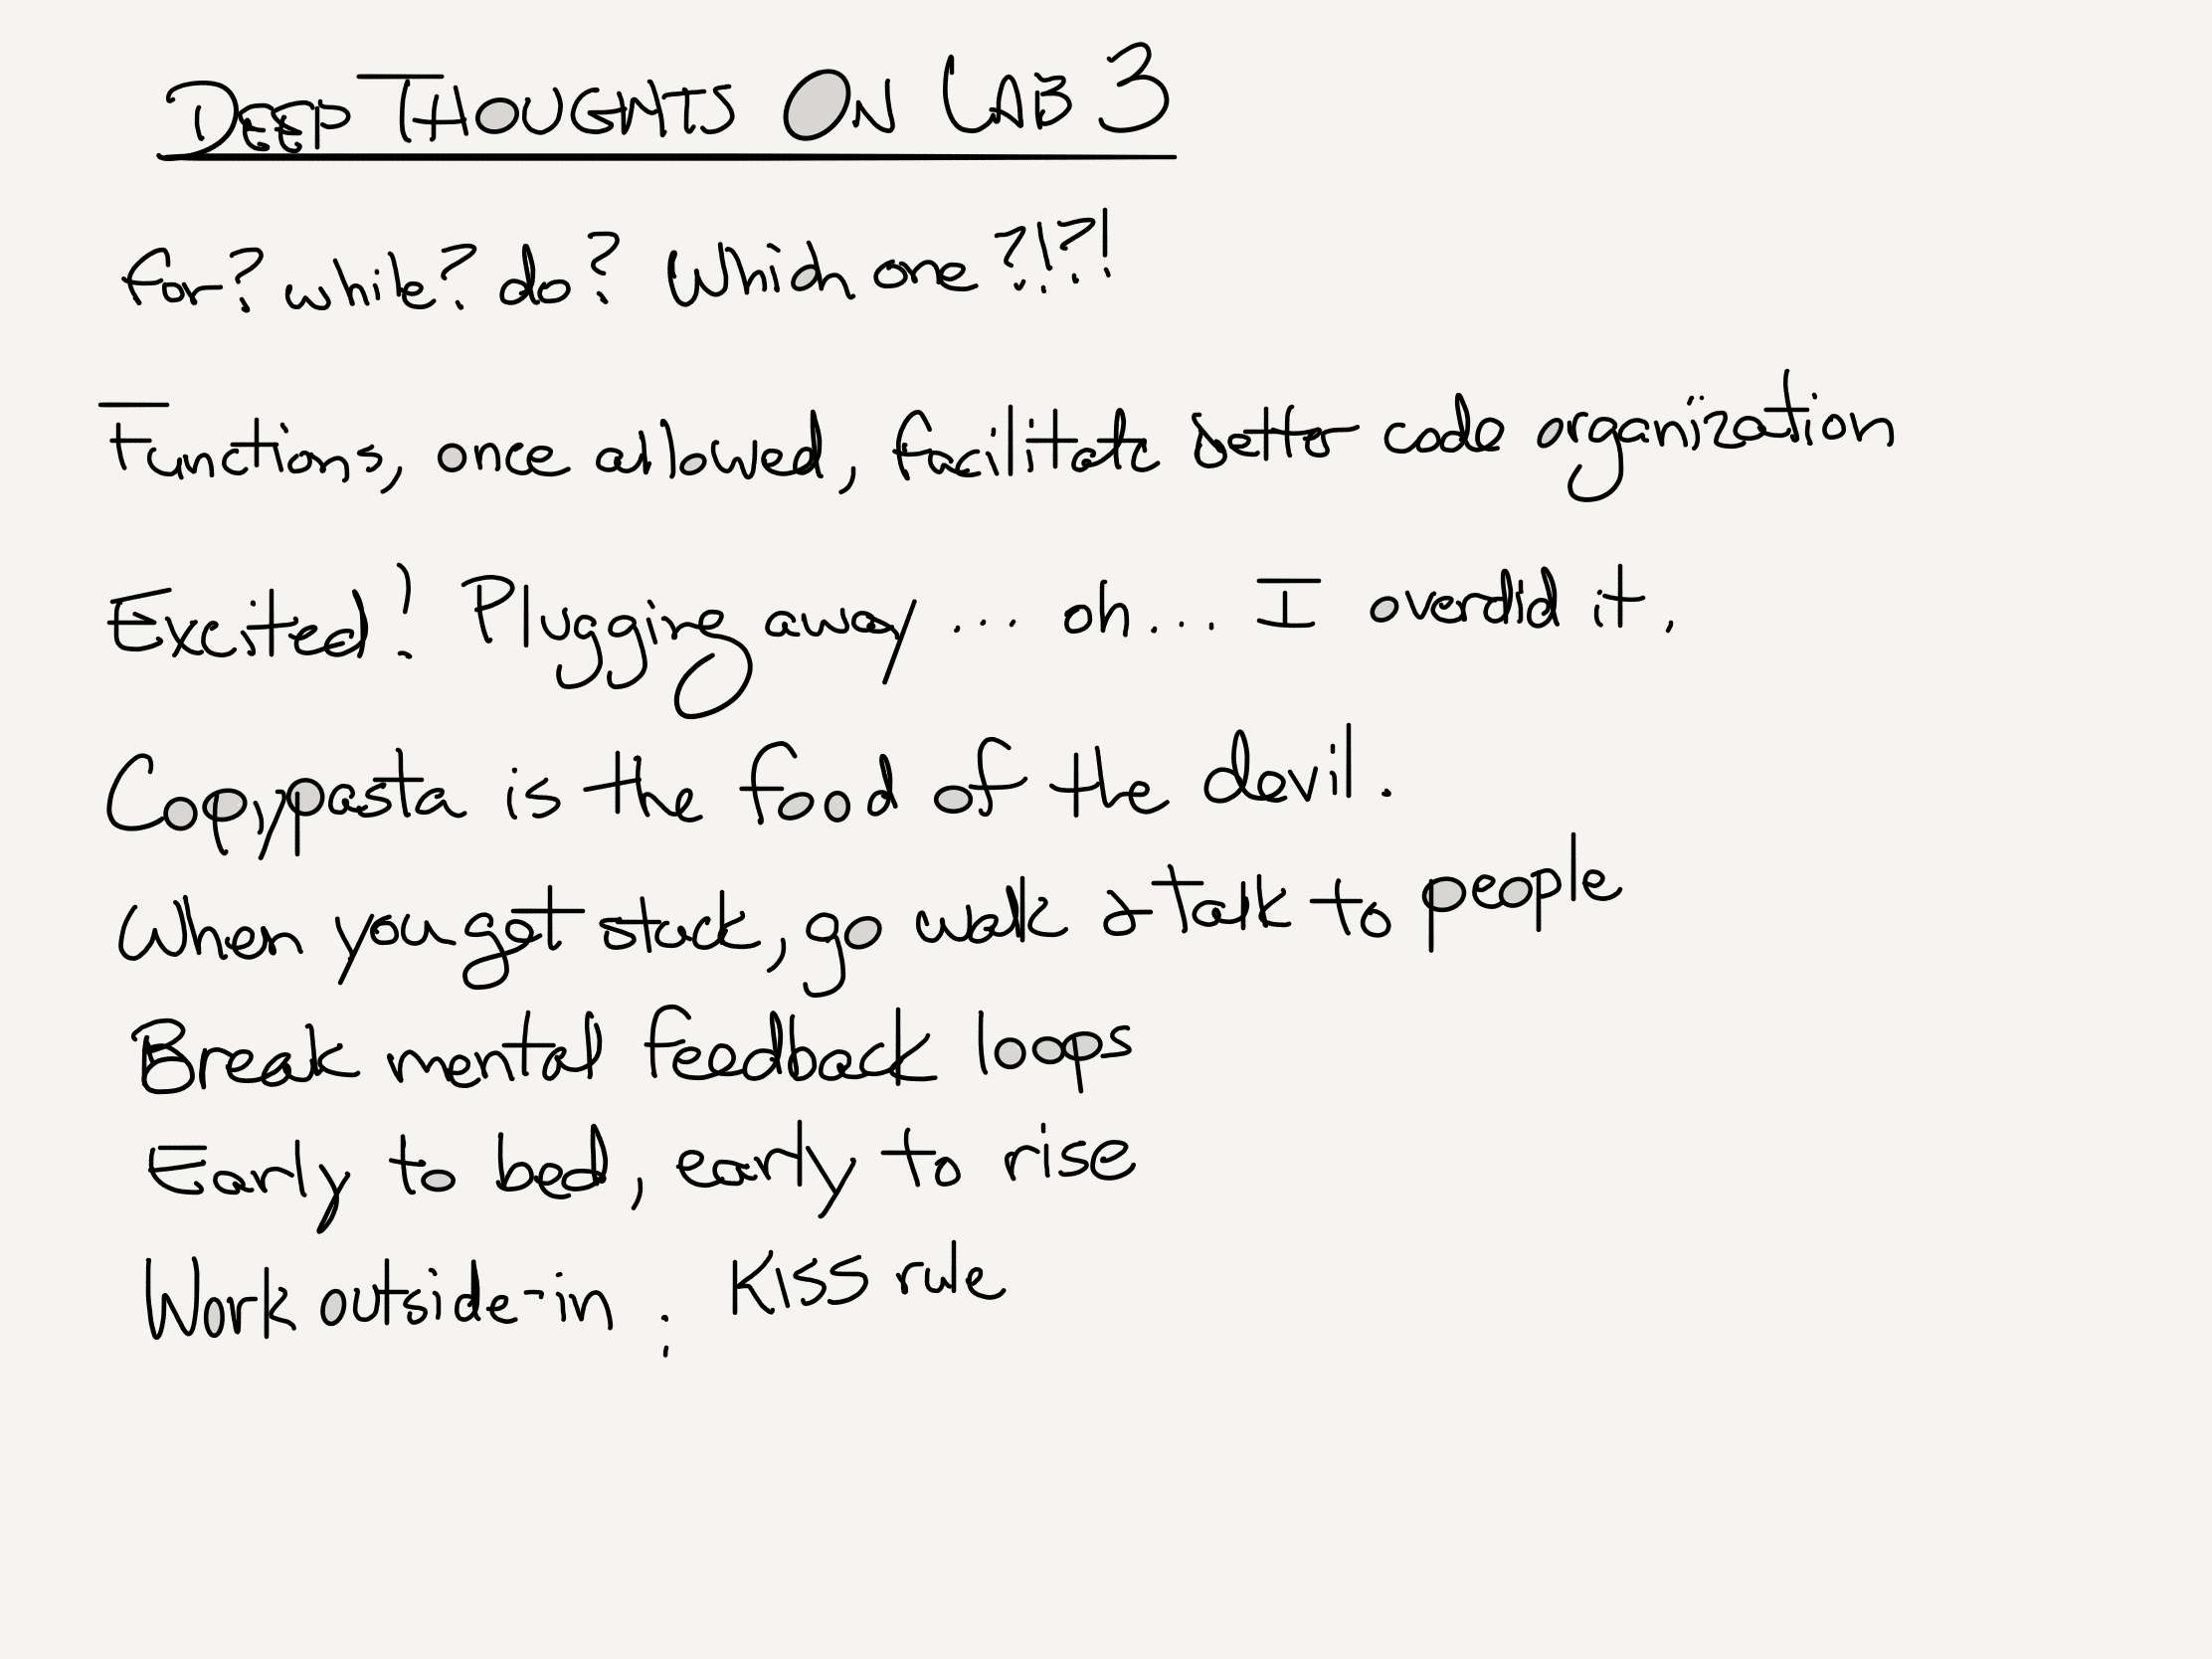 DEEP THOUGHTS ON LAB 3
for? while? do? Which one?!?!
Functions, once allowed, facilitate better code organization
Excited! Plugging away... oh... I overdid it.
Copypasta is the food of the devil.
When you get stuck, go walk & talk to people
Break mental feedback loops
Early to bed, early to rise
Work outside-in ; KISS rule